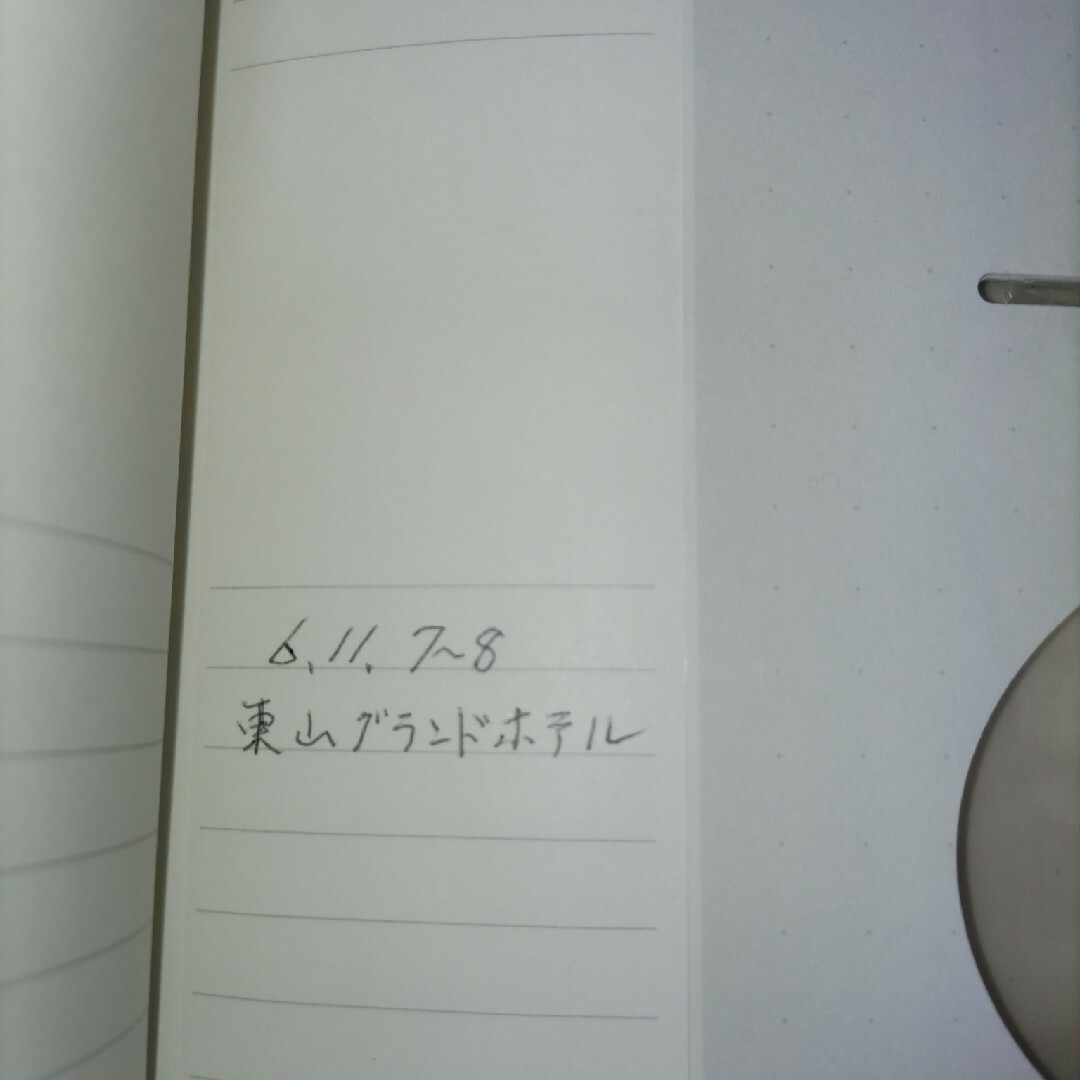 6.11.7~8
東山グランドホテル